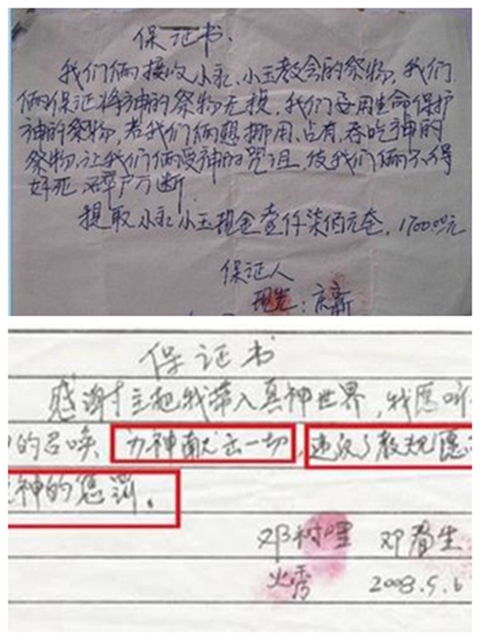 保证书.
我们俩接收小永、小玉教会的祭物,我们
俩保证将神的祭物无损,我们要用生命保护
神的祭物,若我们俩想挪用、占有、吞吃神的
祭物,让我们俩受神的咒诅,使我们俩不得
好死
提取小永小玉现金壹仟柒佰元全,1700.00元
保证人
保证书
感谢主把我带入真神世界,我愿听
的召唤 为神献出一切,违反了教规愿
神的惩罚。
邓树 邓有生
火秀 2008.5.6